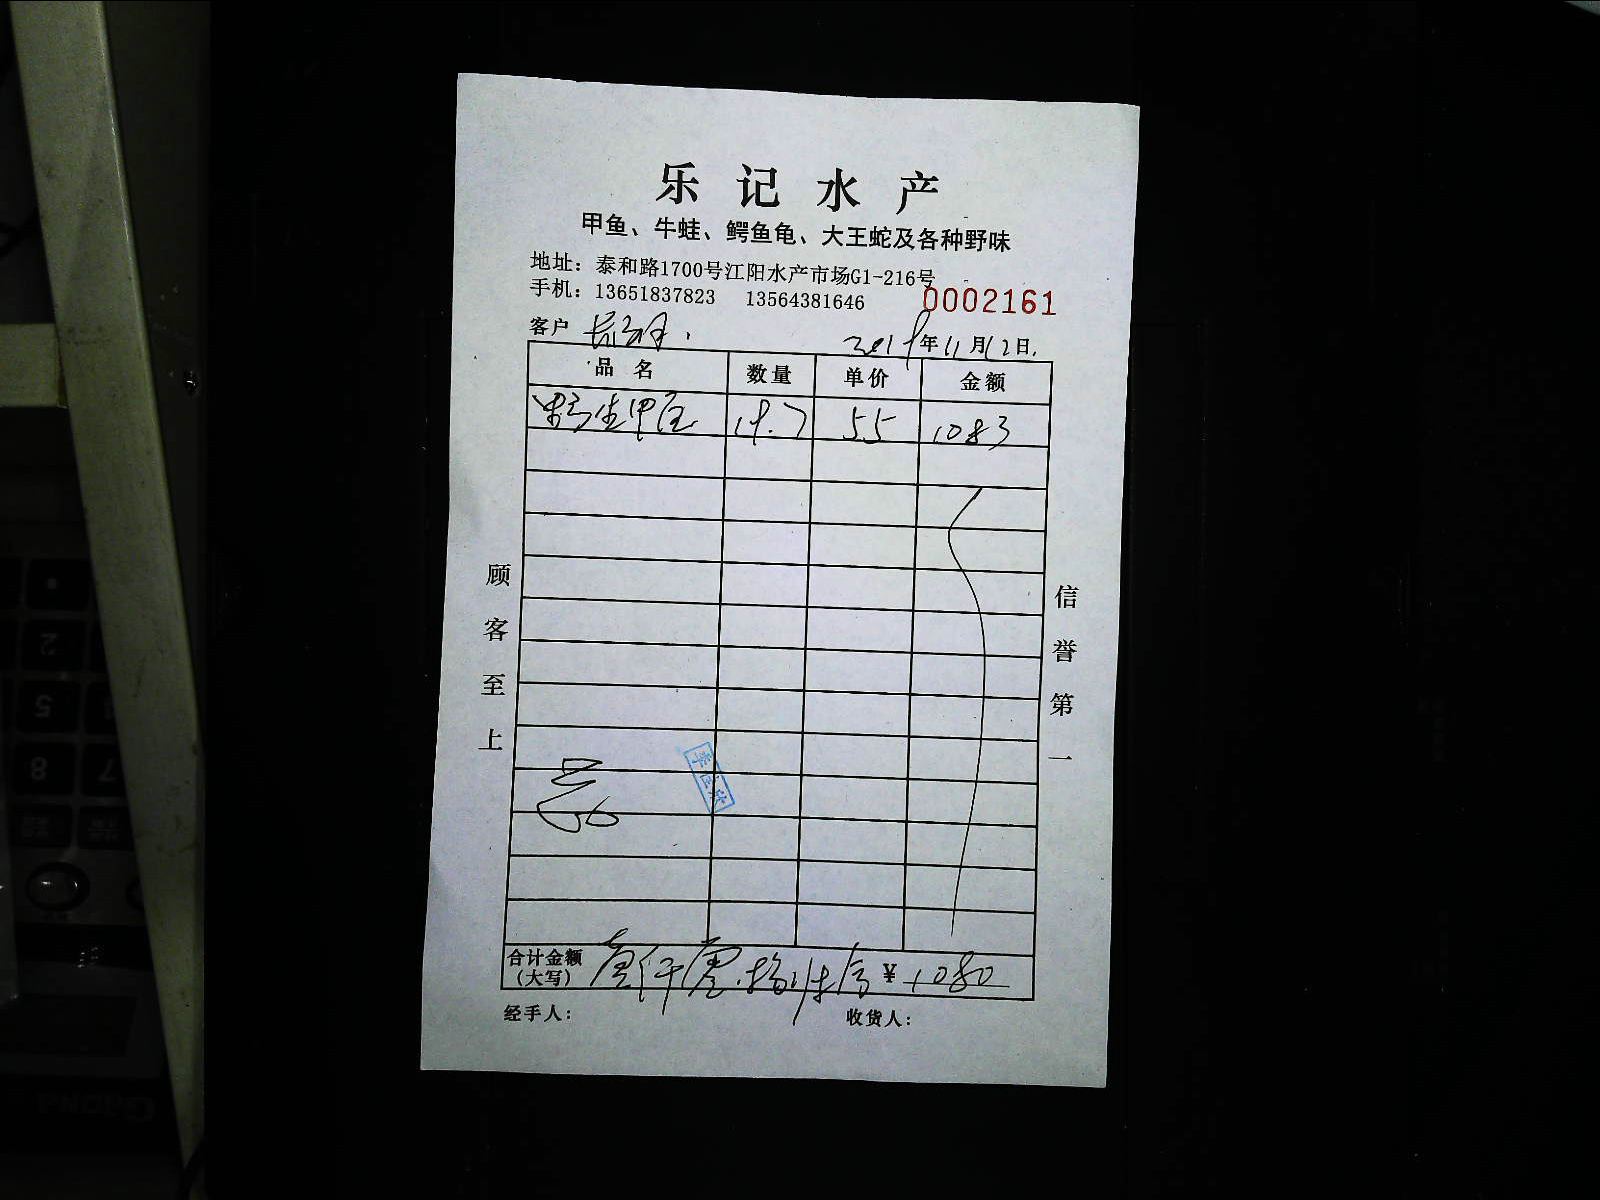 乐记水产
甲鱼、牛蛙、鳄鱼龟、大王蛇及各种野味
地址：泰和路1700号江阳水产市场G1-216号
手机：13651837823 13564381646
0002161
客户
2019年11月12日
品名 数量 单价 金额
生甲 19.7 55 1083
顾客至上
信誉第一
合计金额（大写） 壹仟零捌拾 ¥1080
经手人： 收货人：